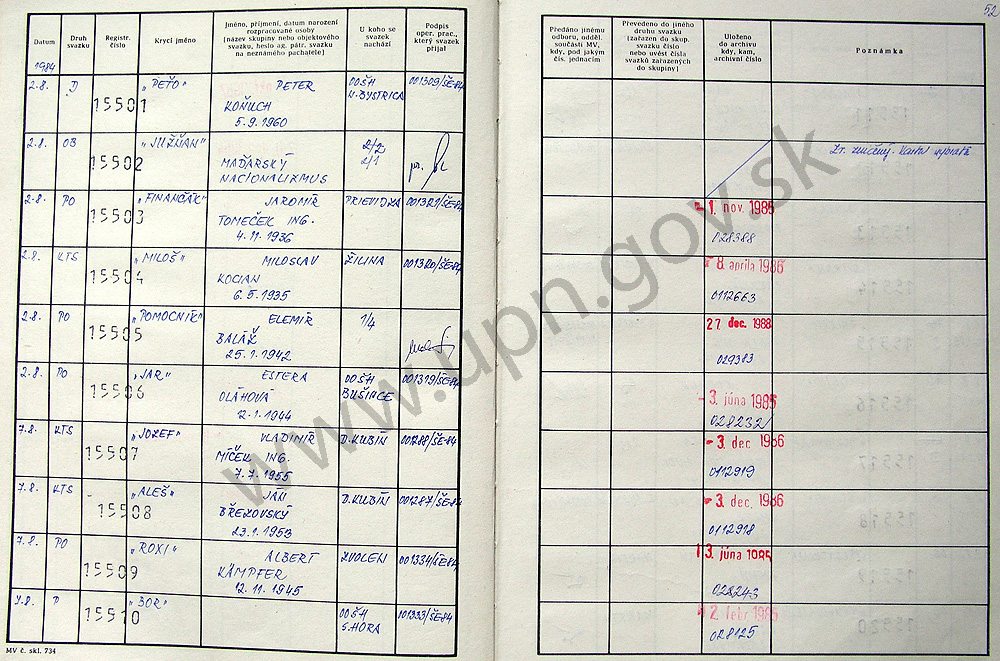 52
Datum
Druh svazku
Registr. číslo
Krycí jméno
Jméno, příjmení, datum narození
rozpracované osoby
(název skupiny nebo objektového
svazku, heslo ag. pátr. svazku
na neznámého pachatele)
U koho se
svazek
nachází
Podpis
oper. prac.,
který svazek
přijal
Předáno jinému
odboru, odděl.
součásti MV,
kdy, pod jakým
čís. jednacím
Převedeno do jiného
druhu svazku
(zařazen do skup.
svazku číslo
nebo uvést čísla
svazků zařazených
do skupiny)
Uloženo
do archivu
kdy, kam,
archivní číslo
Poznámka
1984
2.8. D 15501 "PEŤO" PETER OOŠH 001309/ŠE-84
KOŇUCH K.BYSTRICA
5.9.1960
2.8. OB 15502 "JUŽŇAN" 2/2
MAĎARSKÝ 2/1
NACIONALIZMUS
2.8. PO 15503 "FINANČÁK" JAROMÍR PRIEVIDZA 001321/ŠE84 1. nov. 1985
TOMEČEK ING. 028388
4.11.1936
2.8. KTS 15504 "MILOŠ" MILOSLAV ŽILINA 001320/ŠE84 8. apríla 1986
KOCIAN 0112663
6.5.1935
2.8. PO 15505 "POMOCNÍK" ELEMÍR 1/4 27. dec. 1988
BALÁŽ 029383
25.1.1942
2.8. PO 15506 "JAR" ESTERA OOŠH 001319/ŠE-84 3. júna 1985
OLÁHOVÁ BUŠINCE 028232/
2.1.1944
7.8. KTS 15507 "JOZEF" VLADIMÍR D.KUBÍN 001288/ŠE84 3. dec. 1986
MÍČEK ING. 0112919
7.7.1955
7.8. KTS 15508 "ALEŠ" JAN D.KUBÍN 001287/ŠE84 3. dec. 1986
BŘEZOVSKÝ 0112918
23.1.1953
7.8. PO 15509 "ROXI" ALBERT ZVOLEN 001334/ŠE84 3. júna 1985
KÄMPFER 028243
12.11.1945
7.8. D 15510 "BOR" OOŠH 001333/ŠE84 2. febr 1985
S.HORA 028125
MV č. skl. 734
www.upn.gov.sk